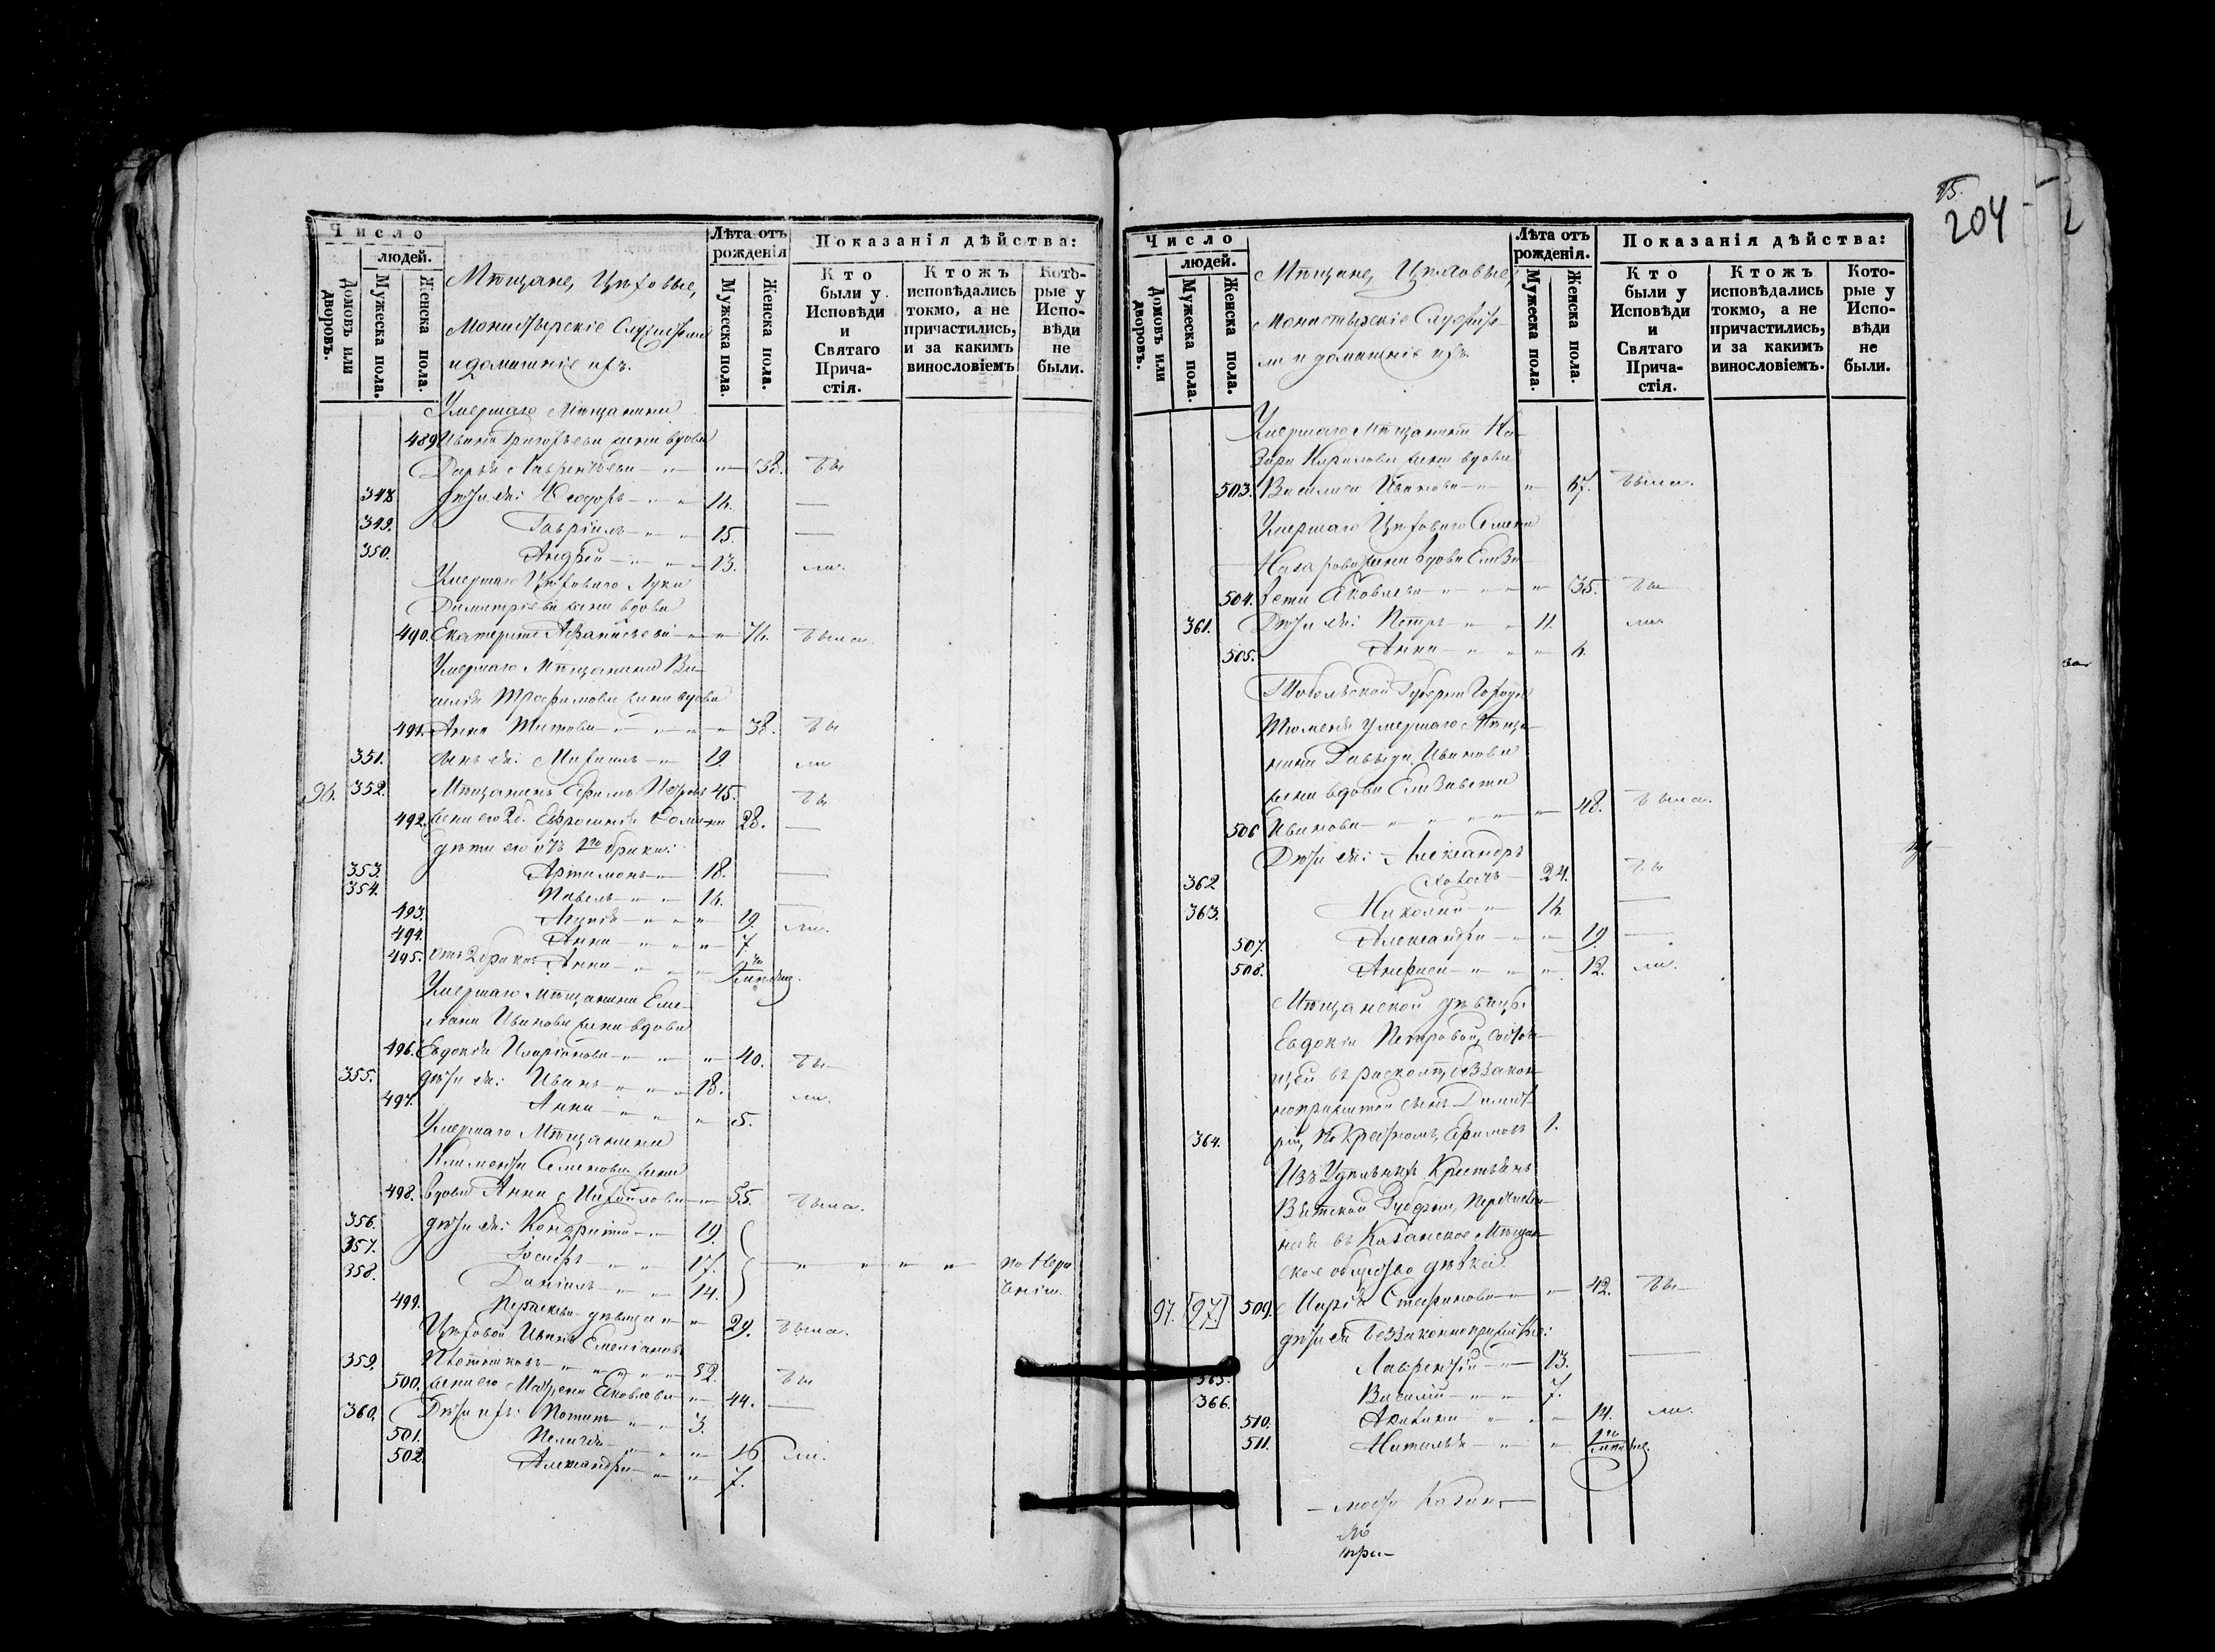 Число
людей.
Домовъ или дворовъ.
Мужеска пола.
Женска пола.
Мѣщане, Цѣховые,
Монастырскіе Служители
и домашніе ихъ.
Лѣта отъ рожденія
Мужеска пола.
Женска пола.
Показанія дѣйства:
Кто были у Исповѣди и Святаго Прича-стія.
Ктожъ исповѣдались токмо, а не причастились, и за какимъ винословіемъ
Кото-рые у Испо-вѣди не были.
Умершаго Мѣщанина
489 Ивана Григорьева жена вдова
Дарья Лаврентьева 38. бы
348. дѣти ея: Ѳеодоръ 16.
349. Гавріилъ 15.
350. Андрей 13. ли.
Умершаго Цѣховаго Луки
Димитріева жена вдова
490. Екатерина Афанасьева 76. была.
Умершаго Мѣщанина Ва-
силія Трофимова жена вдова
491. Анна Титова 38. бы
351. сынъ ея: Михаилъ 19. ли
96. 352. Мѣщанинъ Ефимъ Петровъ 45. бы
492. жена его 2 б. Ефросинія 28.
дѣти его отъ 1го брака:
353. Артамонъ 18.
354. Павелъ 16.
493. 19. ли.
494. Анна 7
495. отъ 2 брака: Анна
Умершаго Мѣщанина Еме-
ліана Иванова жена вдова
496. Евдокія Иларіонова 40. бы
355. дѣти ея: Иванъ 18. ли.
497. Анна 5.
Умершаго Мѣщанина
Климента Семенова жена
498. вдова Анна Михайлова 55. была.
356. дѣти ея: Кондратій 19.
357. Іосифъ 17. по нера
358. Даніилъ 14. денію.
499. Параскева девица 29. была.
Цѣховой Иванъ Емеліановъ
359. Плотниковъ 52. бы
500. жена его Матрена Яковлева 44.
360. Дѣти ихъ: Потапъ 3.
501. Пелагія 16 ли.
502. Александра 7.
15.
204
Число
людей.
Домовъ или дворовъ.
Мужеска пола.
Женска пола.
Мѣщане, Цѣховые,
Монастырскіе Служите-
ли и домашніе ихъ.
Лѣта отъ рожденія.
Мужеска пола.
Женска пола.
Показанія дѣйства:
Кто были у Исповѣди и Святаго Прича-стія.
Ктожъ исповѣдались токмо, а не причастились, и за какимъ винословіемъ.
Кото-рые у Испо-вѣди не были.
Умершаго Мѣщанина На-
зара Кирилова жена вдова
503. Василиса Иванова 67. была.
Умершаго Цѣховаго Семена
Назарова жена вдова Елиза-
504. вета Яковлева 35. бы
361. Дѣти ея: Петръ 11. ли
505. Анна 6.
Тобольской Губерніи Города
Тюмени умершаго Мѣща-
нина Давыда Иванова
жена вдова Елизавета
506 Иванова 48. была.
Дѣти ея: Александръ
362 24. бы
363. Николай 16.
507. Александра 19
508. Анфиса 12. ли.
Мѣщанской дѣвицы
Евдокіи Петровой, состоя-
щей въ расколѣ, беззакон-
ноприжитой сынъ Димит-
364. рій, по крестномъ, Ефимовъ 1.
Изъ Удѣльныхъ Крестьянъ
Вятской Губерніи, перечислен-
ная въ Казанское Мѣщан-
ское общество дѣвка
97. [97.] 509. Марія Стефанова 42. бы
дѣти ея беззаконноприжитые:
365. Лаврентій 13.
366. Василій 7.
510. Акилина 14. ли.
511. Наталья